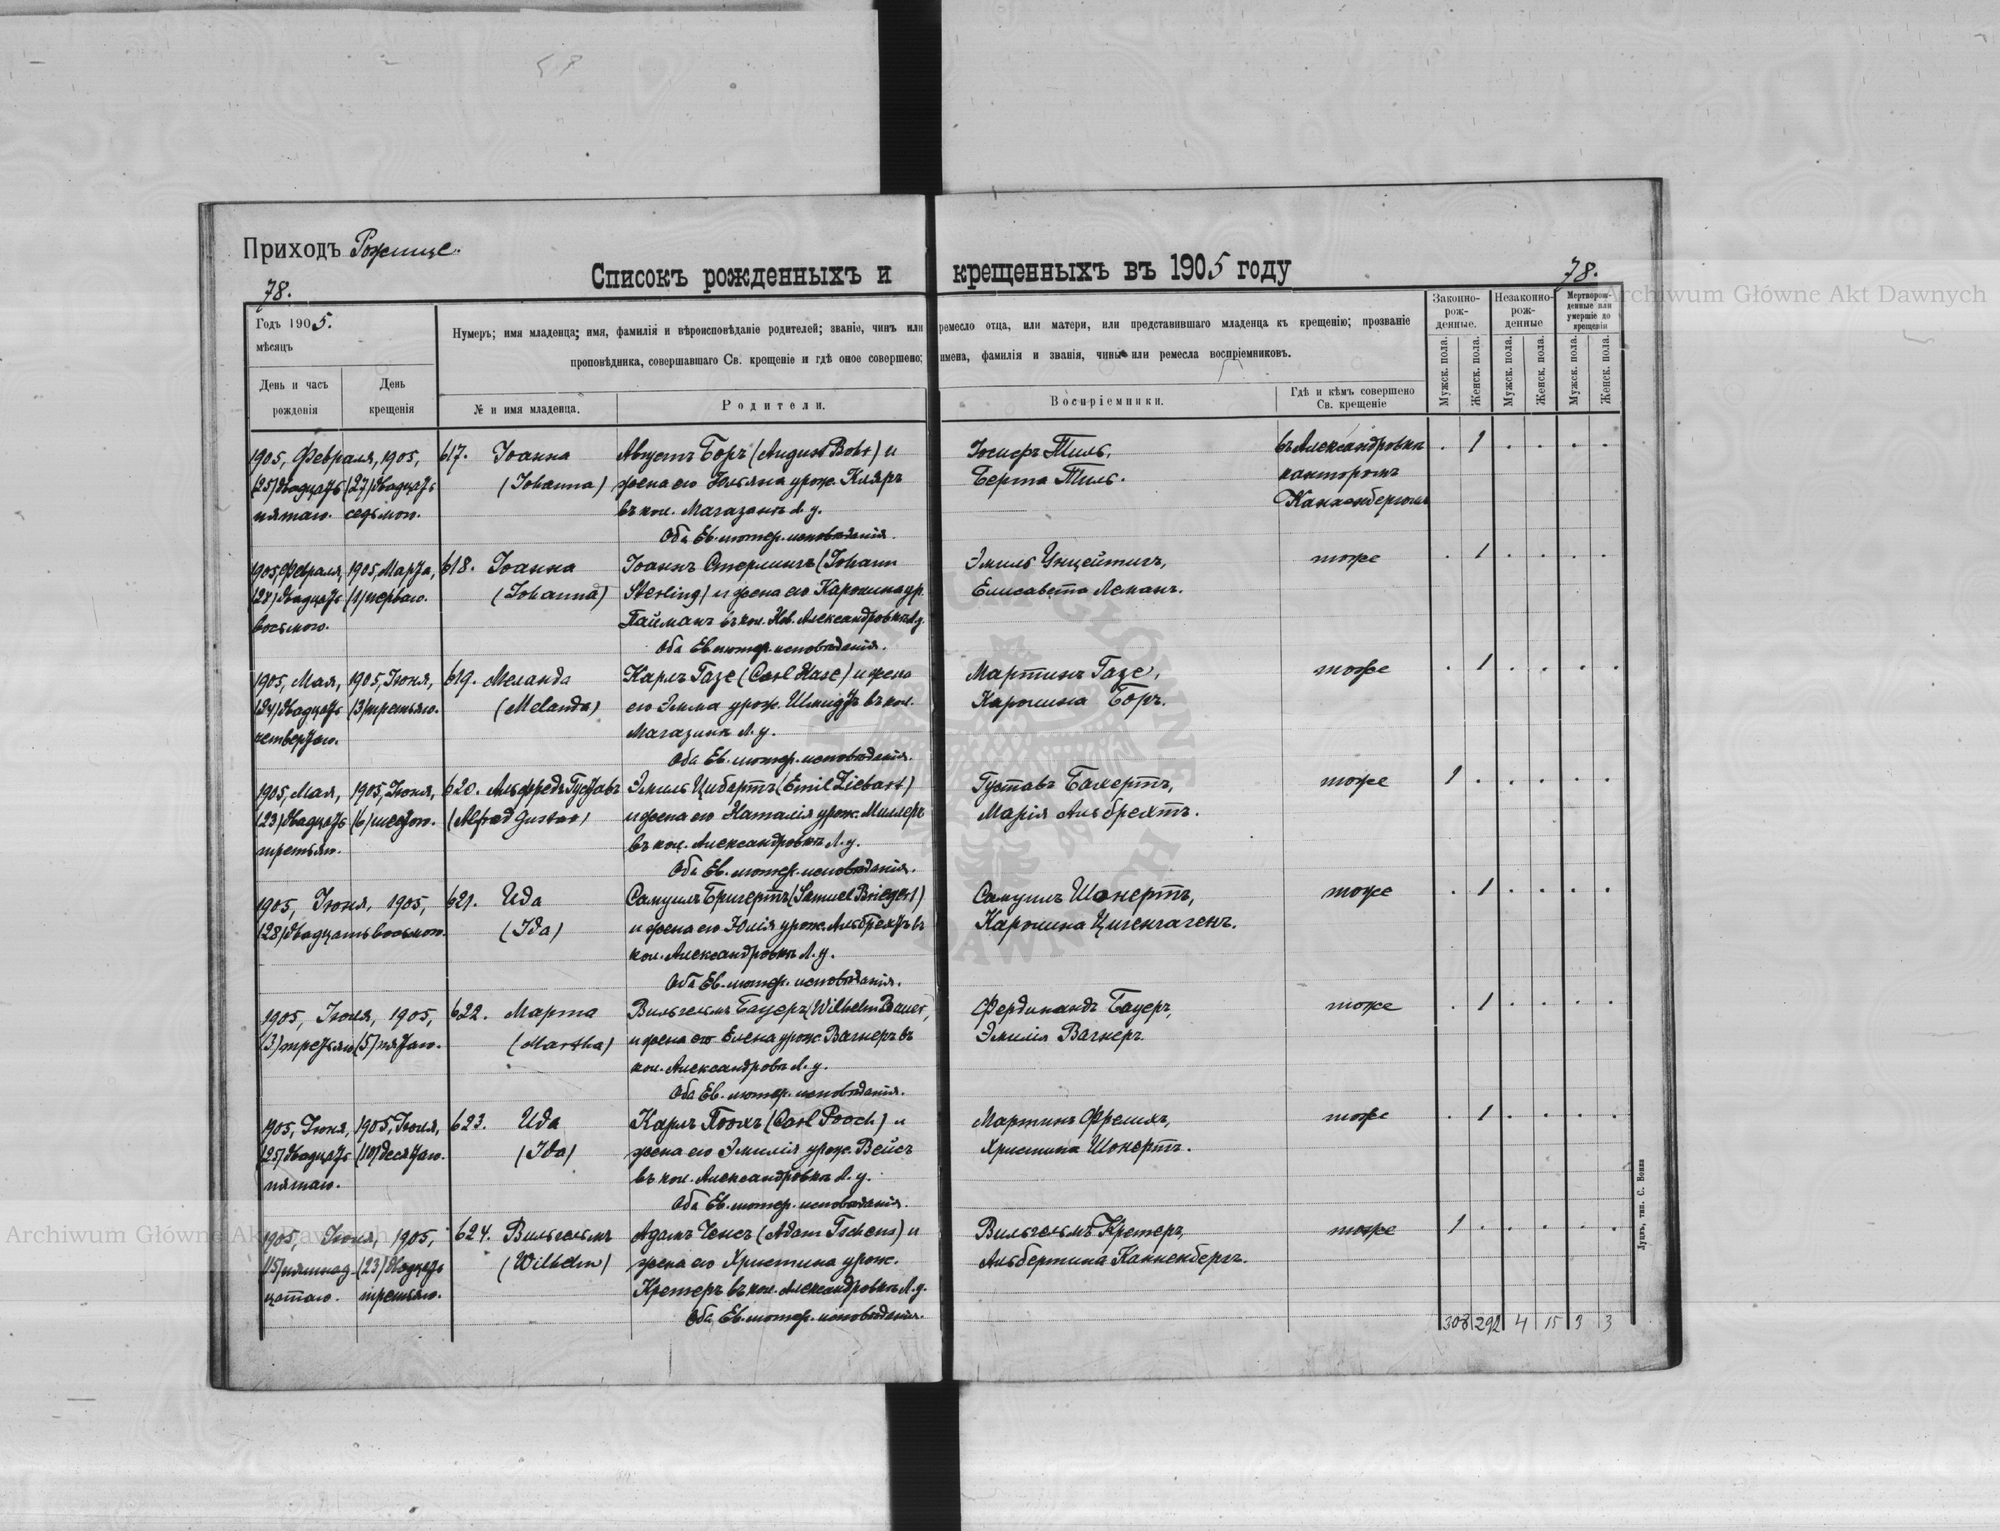 Приходъ Рожище.
Списокъ рожденныхъ и крещенныхъ въ 1905 году
78.
78.
Годъ 1905.
мѣсяцъ
День и часъ рожденія
День крещенія
Нумеръ; имя младенца; имя, фамилія и вѣроисповѣданіе родителей; званіе, чинъ или ремесло отца, или матери, или представившаго младенца къ крещенію; прозваніе
проповѣдника, совершавшаго Св. крещеніе и гдѣ оное совершено; имена, фамилія и званія, чины или ремесла воспріемниковъ.
№ и имя младенца.
Родители.
Воспріемники.
Гдѣ и кѣмъ совершено Св. крещеніе
Законно-рож-денные.
Незаконно-рож-денные
Мертворож-денные или умершіе до крещенія
Мужск. пола.
Женск. пола.
Мужск. пола.
Женск. пола.
Мужск. пола.
Женск. пола.
1905, Февраля, 1905, 617. Іоанна Августъ Боръ (August Boht) и Іосифъ Тиль, въ Александровкѣ . 1 . . . .
(25) двадцать (27) двадцать (Johanna) жена его Юльяна урож. Кляръ Берта Тиль. канторомъ
пятаго. седьмого. въ кол. Магазанкѣ Л. у.
Оба Ев. лютер. исповѣданія.
1905, Февраля, 1905, Марта, 618. Іоанна Іоаннъ Стерлингъ (Johann Эмиль Унцейтигъ, тоже . 1 . . . .
(28) двадцать (1) перваго. (Johanna) Sterling) и жена его Каролина ур. Елисавета Леманъ.
восьмого. Пайманъ въ кол. Нов. Александровкѣ Л. у.
Оба Ев. лютер. исповѣданія.
1905, Мая, 1905, Іюня, 619. Меланда Карлъ Газе (Carl Hase) и жена Мартинъ Газе, тоже . 1 . . . .
(24) двадцать (3) третьяго. (Melanda) его Эмма урож. Шмидтъ въ кол. Каролина Боръ.
четвертаго. Магазинкѣ Л. у.
Оба Ев. лютер. исповѣданія.
1905, Мая, 1905, Іюня, 620. Альфредъ Густавъ Эмиль Цибартъ (Emil Ziebart) Густавъ Бахертъ, тоже 1 . . . . .
(23) двадцать (6) шестого. (Alfred Gustav) и жена его Наталія урож. Миллеръ Марія Альбрехтъ.
третьяго. въ кол. Александровкѣ Л. у.
Оба Ев. лютер. исповѣданія.
1905, Іюня, 1905, 621. Ида Самуилъ Бригертъ (Samuel Briegert) Самуилъ Шонертъ, тоже . 1 . . . .
(28) двадцать восьмого. (Ida) и жена его Юлія урож. Альбрехтъ въ Каролина Цигенгагенъ.
кол. Александровкѣ Л. у.
Оба Ев. лютер. исповѣданія.
1905, Іюля, 1905, 622. Марта Вильгельмъ Бауеръ (Wilhelm Bauer, Фердинандъ Бауеръ, тоже . 1 . . . .
(3) третьяго (5) пятаго. (Martha) и жена его Елена урож. Вагнеръ въ Эмилія Вагнеръ.
кол. Александровк Л. у.
Оба Ев. лютер. исповѣданія.
1905, Іюня, 1905, Іюля, 623. Ида Карлъ Поохъ (Carl Pooch) и Мартинъ Фрелихъ, тоже . 1 . . . .
(25) двадцать (10) десятаго. (Ida) жена его Эмилія урож. Вейсъ Христина Шонертъ.
пятаго. въ кол. Александровкѣ Л. у.
Оба Ев. лютер. исповѣданія.
1905, Іюля, 1905, 624. Вильгельмъ Адамъ Ченсъ (Adam Tschens) и Вильгельмъ Кретеръ, тоже 1 . . . . .
(15) пятнад- (23) двадцать (Wilhelm) жена его Христина урож. Альбертина Канненбергъ.
цатаго. третьяго. Кретеръ въ кол. Александровкѣ Л. у.
Оба Ев. лютер. исповѣданія.
308 292 4 15 3 3
Луцкъ, тип. С. Бонка
Archiwum Główne Akt Dawnych
Archiwum Główne Akt Dawnych